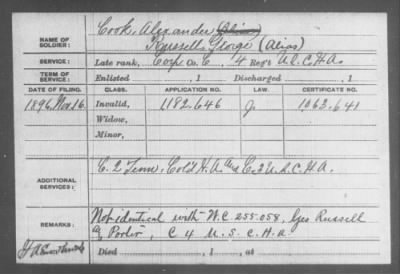 NAME OF SOLDIER: Cook, Alexander (Alias)
Russell, George (Alias)
SERVICE: Late rank, Corp Co. C, 4 Reg't U.S.C.H.A.
TERM OF SERVICE: Enlisted , 1 Discharged , 1
DATE OF FILING. CLASS. APPLICATION NO. LAW. CERTIFICATE NO.
1896, Nov. 16. Invalid, 1182.646 J. 1063.641
Widow,
Minor,
ADDITIONAL SERVICES: C. 2 Tenn. Col'd H.A. and C. 3 U.S.C.H.A.
REMARKS: Not identical with W.C. 255.058, Geo Russell
Porter, C 4 U.S.C.H.A.
Died , 1 , at